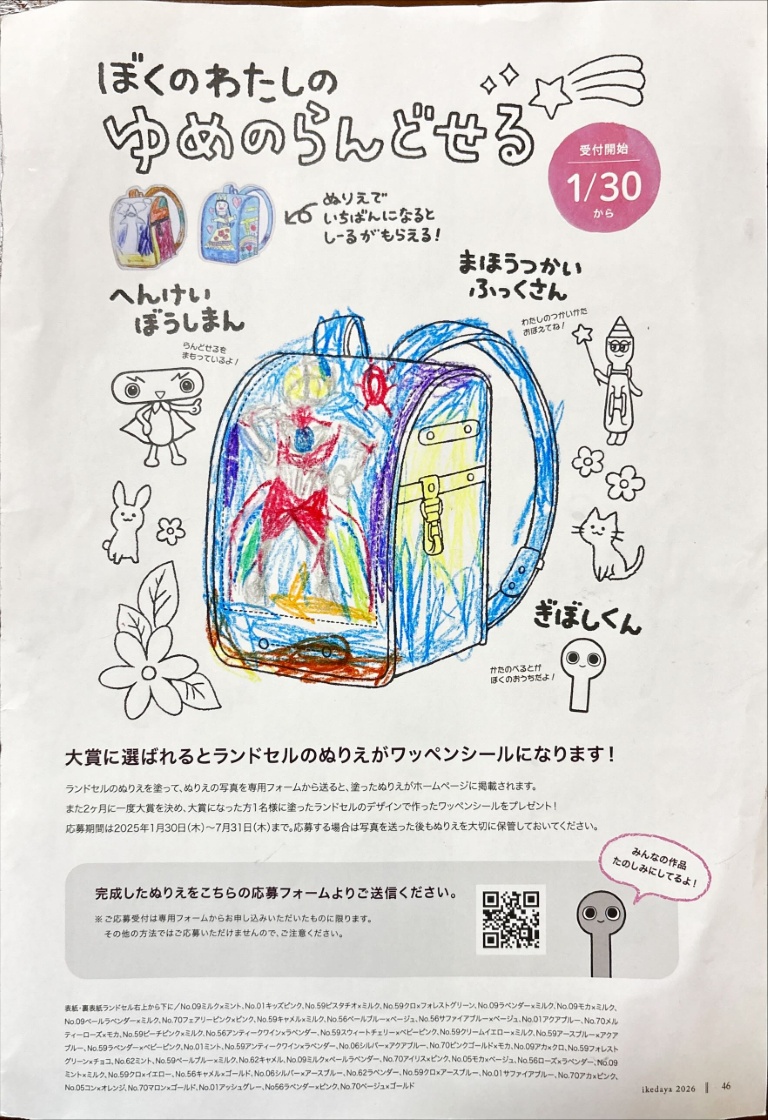 ぼくのわたしの
ゆめのらんどせる
受付開始
1/30
から
ぬりえで
いちばんになると
しーるがもらえる!
まほうつかい
ふっくさん
わたしのつかいかた
おぼえてね!
へんけい
ぼうしまん
らんどせるを
まもっているよ!
ぎぼしくん
かたのべるとが
ぼくのおうちだよ!
大賞に選ばれるとランドセルのぬりえがワッペンシールになります!
ランドセルのぬりえを塗って、ぬりえの写真を専用フォームから送ると、塗ったぬりえがホームページに掲載されます。
また2ヶ月に一度大賞を決め、大賞になった方1名様に塗ったランドセルのデザインで作ったワッペンシールをプレゼント!
応募期間は2025年1月30日(木)〜7月31日(木)まで。応募する場合は写真を送った後もぬりえを大切に保管しておいてください。
みんなの作品
たのしみにしてるよ!
完成したぬりえをこちらの応募フォームよりご送信ください。
※ご応募受付は専用フォームからお申し込みいただいたものに限ります。
その他の方法ではご応募いただけませんので、ご注意ください。
表紙・裏表紙ランドセル右上から下に/No.09ミルク×ミント、No.01キッズピンク、No.59ピスタチオ×ミルク、No.59クロ×フォレストグリーン、No.09ラベンダー×ミルク、No.09モカ×ミルク、
No.09ペールラベンダー×ミルク、No.70フェアリーピンク×ピンク、No.59キャメル×ミルク、No.56ペールブルー×ベージュ、No.56サファイアブルー×ベージュ、No.01アクアブルー、No.70メル
ティーローズ×モカ、No.59ピーチピンク×ミルク、No.56アンティークワイン×ラベンダー、No.59スウィートチェリー×ベビーピンク、No.59クリームイエロー×ミルク、No.59アースブルー×アクア
ブルー、No.59ラベンダー×ベビーピンク、No.01ミント、No.59アンティークワイン×ラベンダー、No.06シルバー×アクアブルー、No.70ピンクゴールド×モカ、No.09アカ×クロ、No.59フォレスト
グリーン×チョコ、No.62ミント、No.59ペールブルー×ミルク、No.62キャメル、No.09ミルク×ペールラベンダー、No.70アイリス×ピンク、No.05モカ×ベージュ、No.56ローズ×ラベンダー、No.09
ミント×ミルク、No.59クロ×イエロー、No.56キャメル×ゴールド、No.06シルバー×アースブルー、No.62ラベンダー、No.59クロ×アースブルー、No.01サファイアブルー、No.70アカ×ピンク、
No.05コン×オレンジ、No.70マロン×ゴールド、No.01アッシュグレー、No56ラベンダー×ピンク、No.70ベージュ×ゴールド
ikedaya 2026 || 46